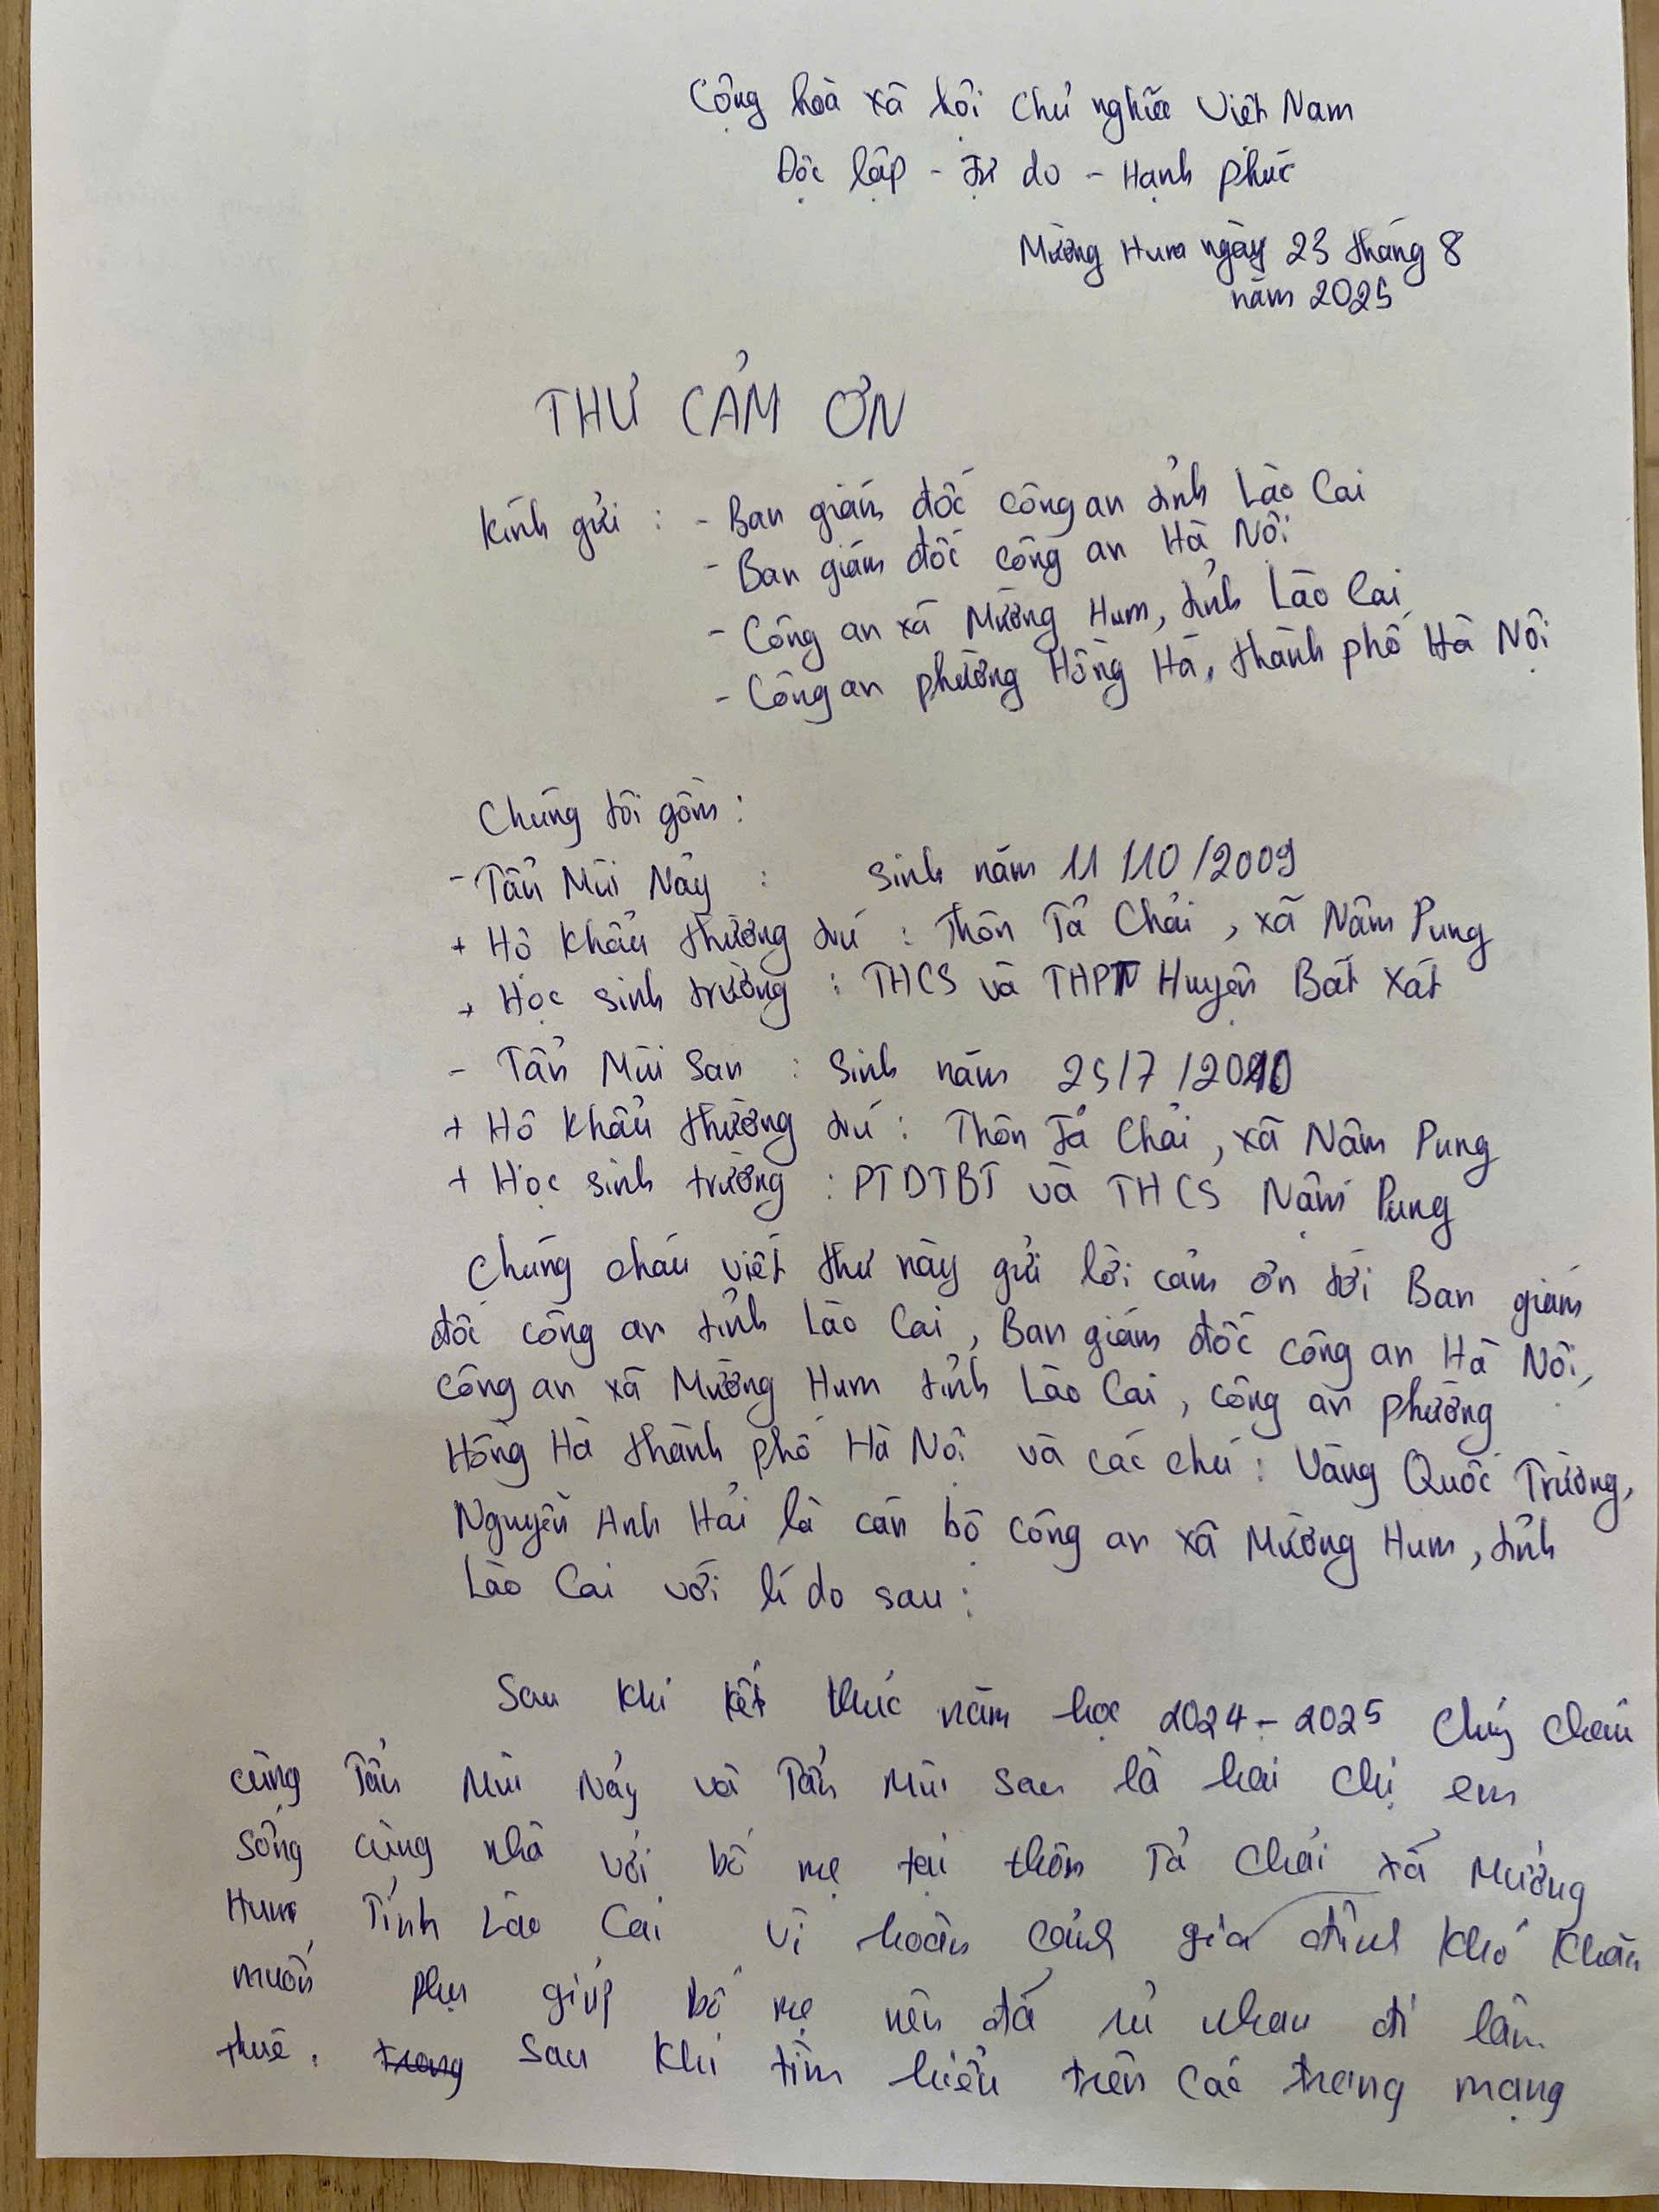 Cộng hoà xã hội chủ nghĩa Việt Nam
Độc lập - Tự do - Hạnh phúc
Mường Hum ngày 23 tháng 8
năm 2025
THƯ CẢM ƠN
Kính gửi : - Ban giám đốc công an tỉnh Lào Cai
- Ban giám đốc công an Hà Nội
- Công an xã Mường Hum, tỉnh Lào Cai
- Công an phường Hồng Hà, thành phố Hà Nội
Chúng tôi gồm :
- Tẩn Mùi Nảy : Sinh năm 11/10/2009
+ Hộ khẩu thường trú : Thôn Tả Chải, xã Nậm Pung
+ Học sinh trường : THCS và THPT Huyện Bát Xát
- Tẩn Mùi San : Sinh năm 25/7/2010
+ Hộ khẩu thường trú : Thôn Tả Chải, xã Nậm Pung
+ Học sinh trường : PTDTBT và THCS Nậm Pung
Chúng cháu viết thư này gửi lời cảm ơn tới Ban giám
đốc công an tỉnh Lào Cai, Ban giám đốc công an Hà Nội,
công an xã Mường Hum tỉnh Lào Cai, công an phường
Hồng Hà thành phố Hà Nội và các chú : Vàng Quốc Trường,
Nguyễn Anh Hải là cán bộ công an xã Mường Hum, tỉnh
Lào Cai với lí do sau :
Sau khi kết thúc năm học 2024 - 2025 chúng cháu
cùng Tẩn Mùi Nảy và Tẩn Mùi San là hai chị em
sống cùng nhà với bố mẹ tại thôn Tả Chải xã Mường
Hum Tỉnh Lào Cai vì hoàn cảnh gia đình khó khăn
muốn phụ giúp bố mẹ nên đã rủ nhau đi làm
thuê. trong Sau khi tìm hiểu trên các trang mạng